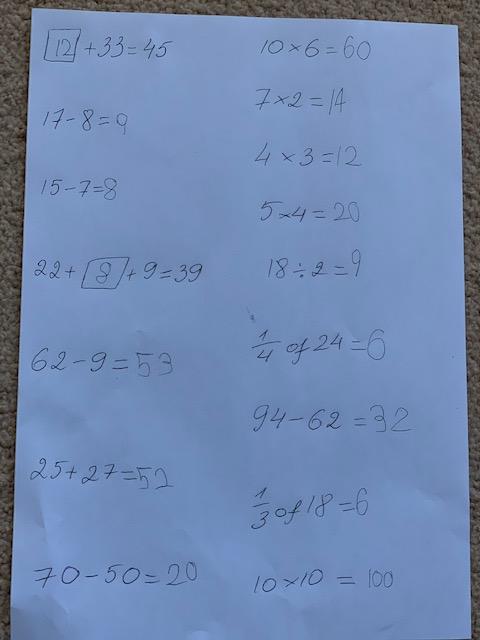 12 + 33 = 45
17 - 8 = 9
15 - 7 = 8
22 + 8 + 9 = 39
62 - 9 = 53
25 + 27 = 52
70 - 50 = 20
10 × 6 = 60
7 × 2 = 14
4 × 3 = 12
5 × 4 = 20
18 ÷ 2 = 9
1/4 of 24 = 6
94 - 62 = 32
1/3 of 18 = 6
10 × 10 = 100